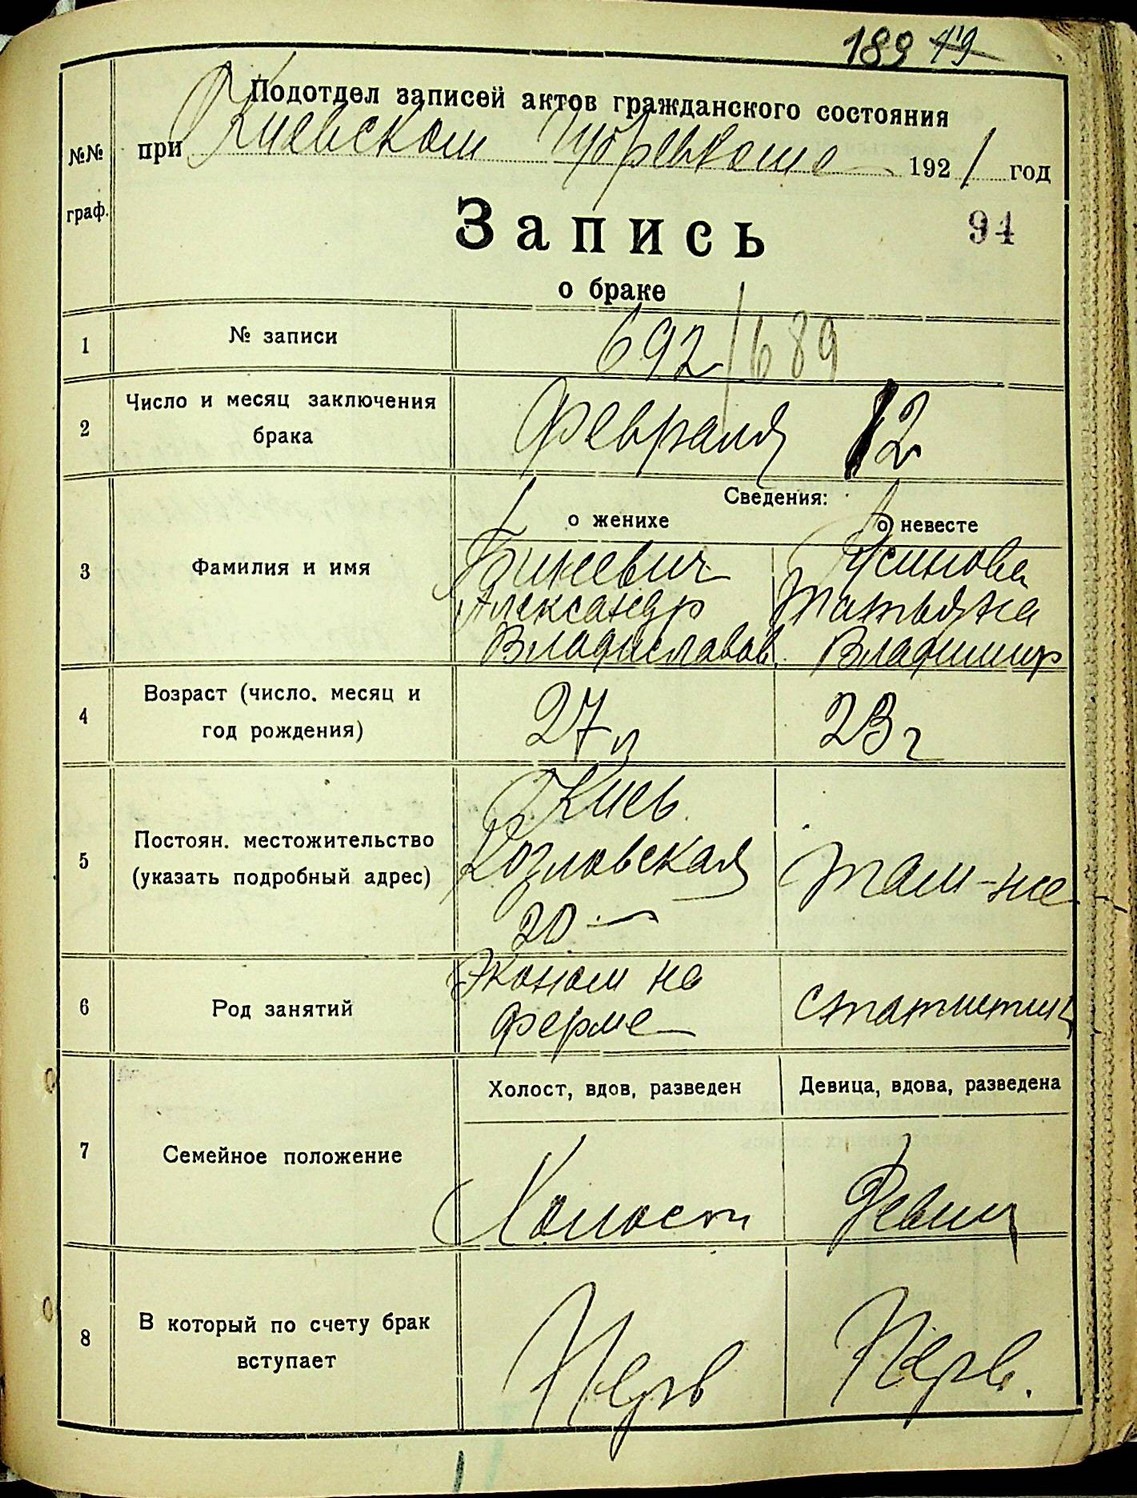 189 49
Подотдел записей актов гражданского состояния
при Киевском Губревкоме 1921 год
№№
граф.
Запись
94
о браке
1 № записи 692/689
2 Число и месяц заключения
брака
Февраля 12
Сведения:
о женихе о невесте
3 Фамилия и имя
Биневич
Александр
Владиславов.
Усинова
Татьяна
Владимир
4 Возраст (число, месяц и
год рождения)
27 л
23 г
5 Постоян. местожительство
(указать подробный адрес)
Киев
Козловская
20
Там-же
6 Род занятий
Эконом на
ферме
статистик
Холост, вдов, разведен Девица, вдова, разведена
7 Семейное положение
Холост
Девиц
8 В который по счету брак
вступает
Перв
Перв.